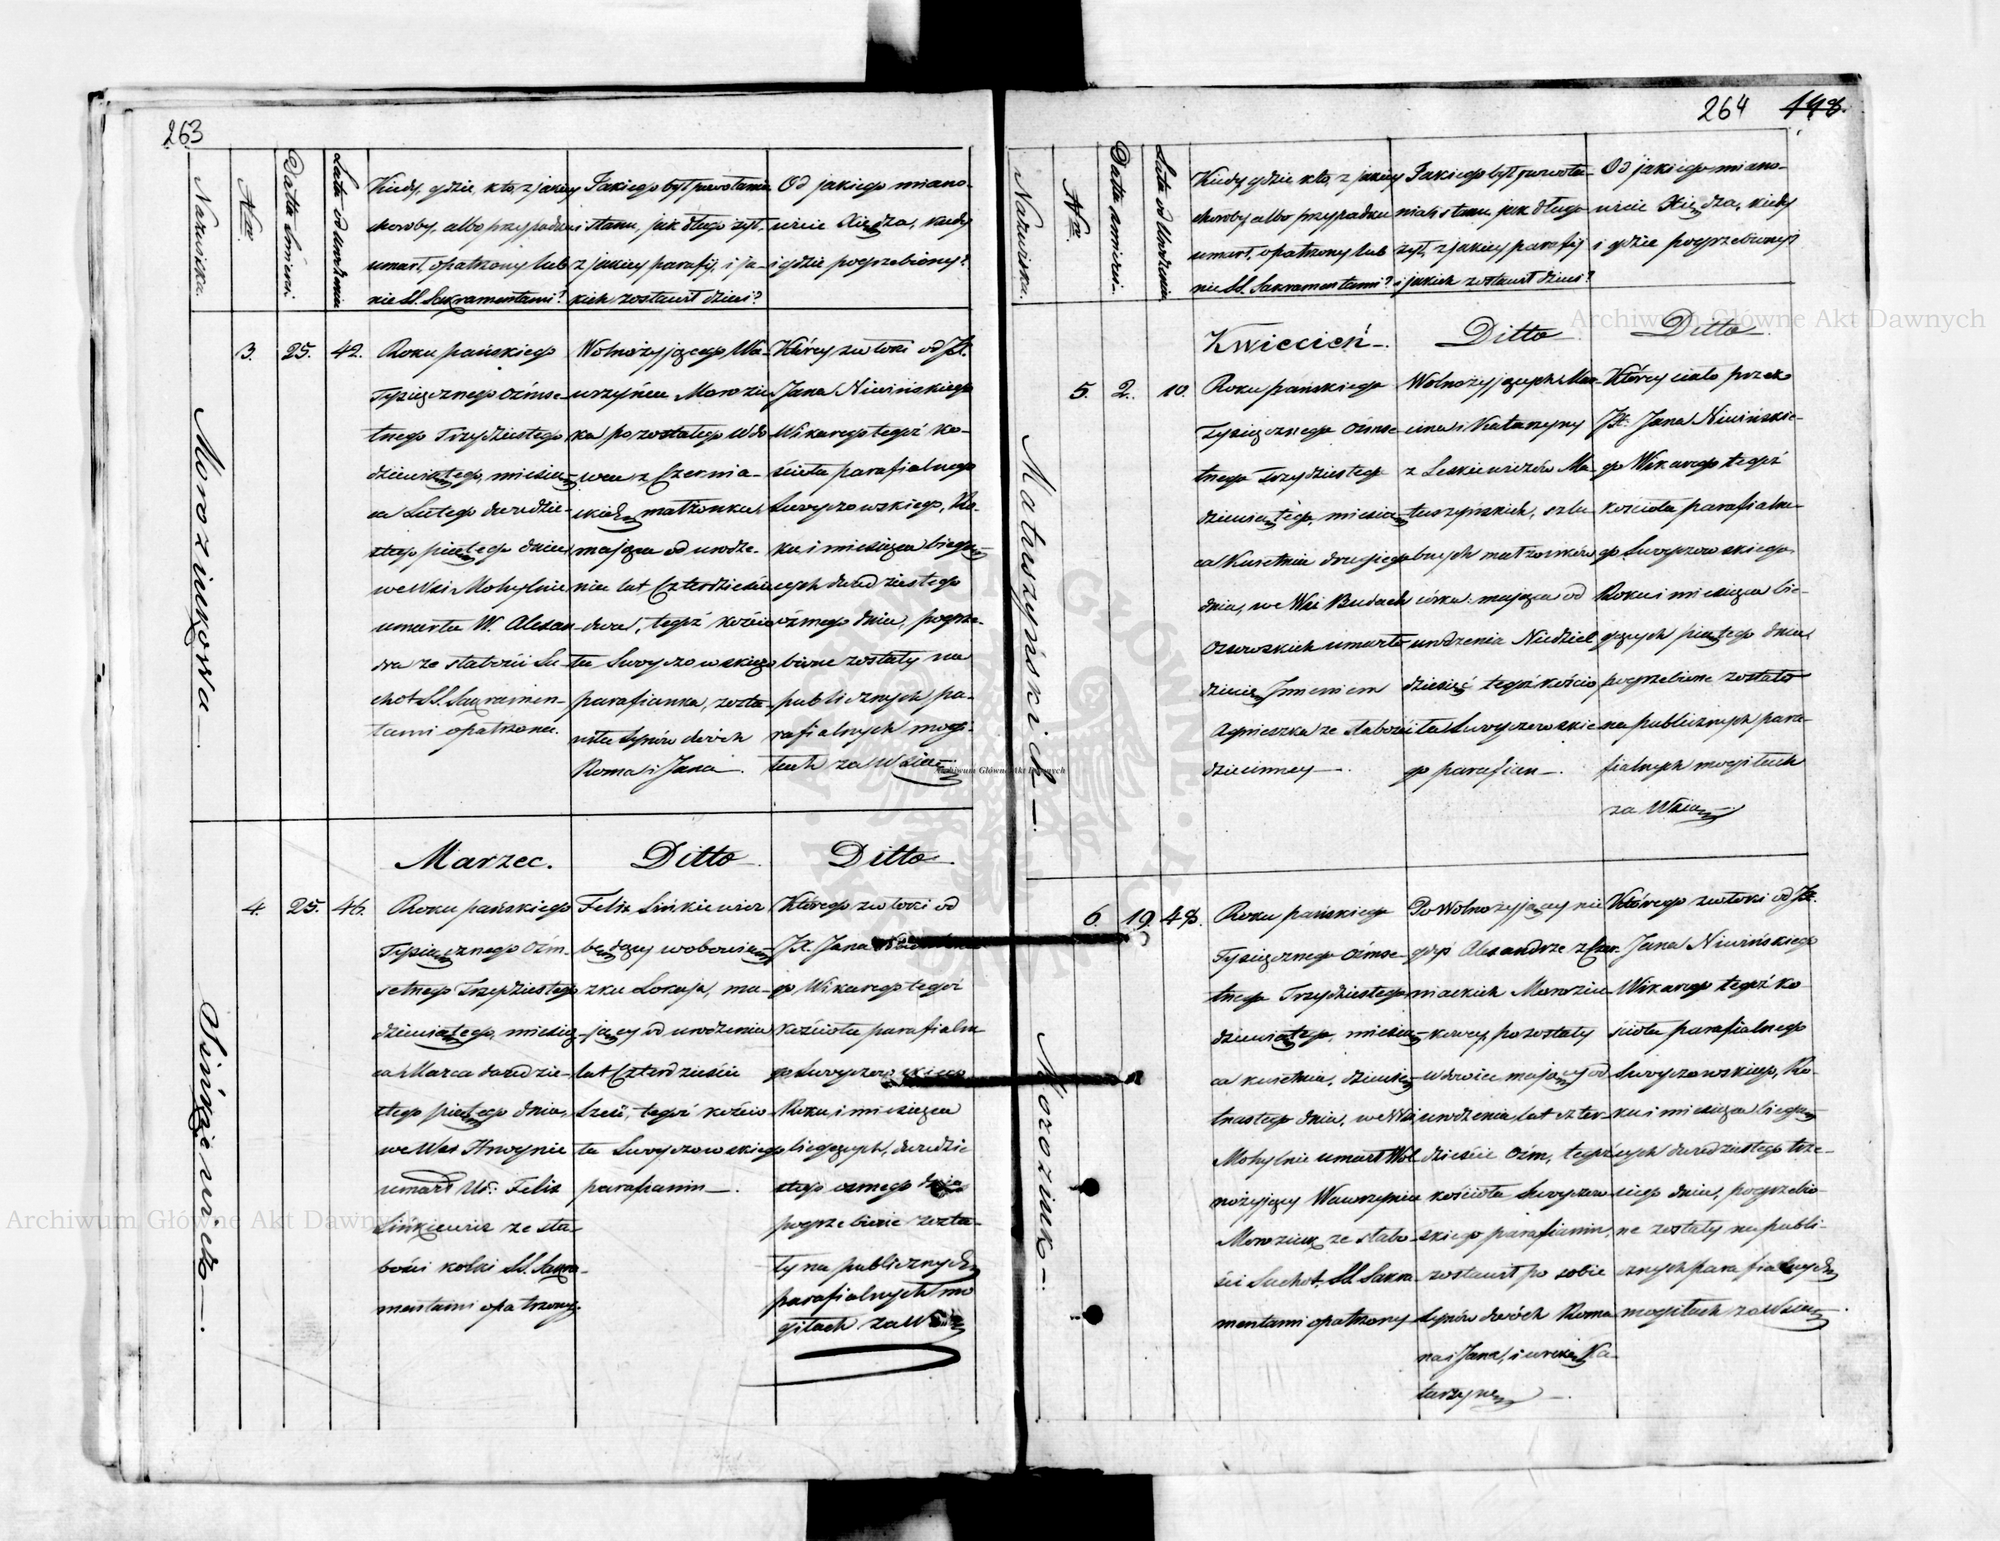 263
Nazwiska.
Nro
Datta śmierci.
Lata od urodzenia
Kiedy, gdzie, kto, z jakiey
choroby, albo przypadku
umarł, opatrzony lub
nie SS. Sakramentami?
Jakiego był powołania
i stanu, jak długo żył,
z jakiey parafij, i ja-
kich zostawił dzieci?
Od jakiego miano-
wicie Xiędza, kiedy
i gdzie pogrzebiony?
Moroziukowa
3.
25.
42.
Roku pańskiego
Tysięcznego Ośmse-
tnego Trzydziestego
dziewiątego, miesią-
ca Lutego dwudzie-
stego piątego dnia,
we Wsi Mohylnie
umarła W. Alexan
dra ze słabości Su-
chot SS. Sakramen-
tami opatrzona.
Wolnożyjącego Wa-
wrzyńca Moroziu
ka pozostałego wdo
wca z Czernia-
wskich małżonka,
mająca od urodze-
nia lat Czterdzieści
dwa, tegoż kościo
ła Swoyczowskiego
parafianka, zosta-
wiła Synów dwóch
Roma i Jana.
Którey zwłoki od JX.
Jana Niwińskiego
Wikarego tegoż ko-
ścioła parafialnego
Swoyczowskiego, Ro-
ku i miesiąca bieżą-
cych dwudziestego
ósmego dnia, pogrze-
bione zostały na
publicznych pa-
rafialnych mogi-
łach za Wsią.
Sińkiewicz
4.
25.
46.
Marzec.
Roku pańskiego
Tysiącznego Ośm-
setnego Trzydziestego
dziewiątego, miesią-
ca Marca dwudzie-
stego piątego dnia,
we Wsi Hnoynie
umarł W. Felix
Sińkiewicz ze sła-
bości kolki SS. Sakra-
mentami opatrzony.
Ditto
Felix Sińkiewicz
będący w obowią-
zku Lokaja, ma-
jący od urodzenia
lat Czterdzieści
sześć, tegoż kościo
ła Swoyczowskiego
parafianin.
Ditto.
Którego zwłoki od
JX. Jana
go, Wikarego tegoż
kościoła parafialne
go Swoyczowskiego
Roku, i miesiąca
bieżących, dwudzie
stego osmego dnia
pogrzebione zosta-
ły na publicznych
parafialnych mo
giłach za Wsią
264
198.
Nazwiska.
Nro.
Datta śmierci.
Lata od Urodzenia
Kiedy, gdzie kto, z jakiey
choroby, albo przypadku
umarł, opatrzony lub
nie SS. Sakramentami?
Jakiego był powoła-
nia i stanu, jak długo
żył, z jakiey parafij
i jakich zostawił dzieci?
Od jakiego miano-
wicie Xiędza, kiedy
i gdzie pogrzebiony?
Matuszyńskich
5.
2.
10.
Kwiecień.
Roku pańskiego
Tysięcznego Ośmse-
tnego Trzydziestego
dziewiątego, miesią-
ca Kwietnia drugiego
dnia, we Wsi Budach
Ossowskich umarło
dziecię Imieniem
Agnieszka ze słabości
dziecinney.
Ditto
Wolnożyjących Mar-
cina i Katarzyny
z Leskiewiczów Ma-
tuszyńskich, szlu-
bnych małżonków
córka: mająca od
urodzenia Niedziel
dziesięć tegoż kościo
ła Swoyczowskie-
go parafian.
Ditto
Którey ciało przez
JX. Jana Niwińskie-
go Wikarego tegoż
kościoła parafialne-
go Swoyczowskiego,
Roku i miesiąca bie-
żących piątego dnia,
pogrzebione zostało
na publicznych para-
fialnych mogiłach
za Wsią.
Moroziuk
6.
19.
48.
Roku pańskiego
Tysięcznego Ośmse-
tnego Trzydziestego
dziewiątego, miesią-
ca kwietnia, dziewię-
tnastego dnia, we Wsi
Mohylnie umarł Wol
nożyjący Wawrzyniec
Moroziuk ze słabo-
ści Suchot, SS. Sakra
mentami opatrzony
Po Wolnożyjącey nie
gdyś Alexandrze z Czer-
niackich Moroziu-
kowey, pozostały
wdowiec mający od
urodzenia lat czter-
dzieście Ośm, tegoż
kościoła Swoyczow-
skiego parafianin,
zostawił po sobie
synów dwóch Roma
na i Jana, i córkę Ka-
tarzynę.
Którego zwłoki od JX.
Jana Niwińskiego
Wikarego tegoż ko-
ścioła parafialnego
Swoyczowskiego, Ro-
ku i miesiąca bieżą-
cych dwudziestego trze-
ciego dnia, pogrzebio-
ne zostały na publi-
cznych parafialnych
mogiłach za Wsią.
Archiwum Główne Akt Dawnych
Archiwum Główne Akt Dawnych
Archiwum Główne Akt Dawnych